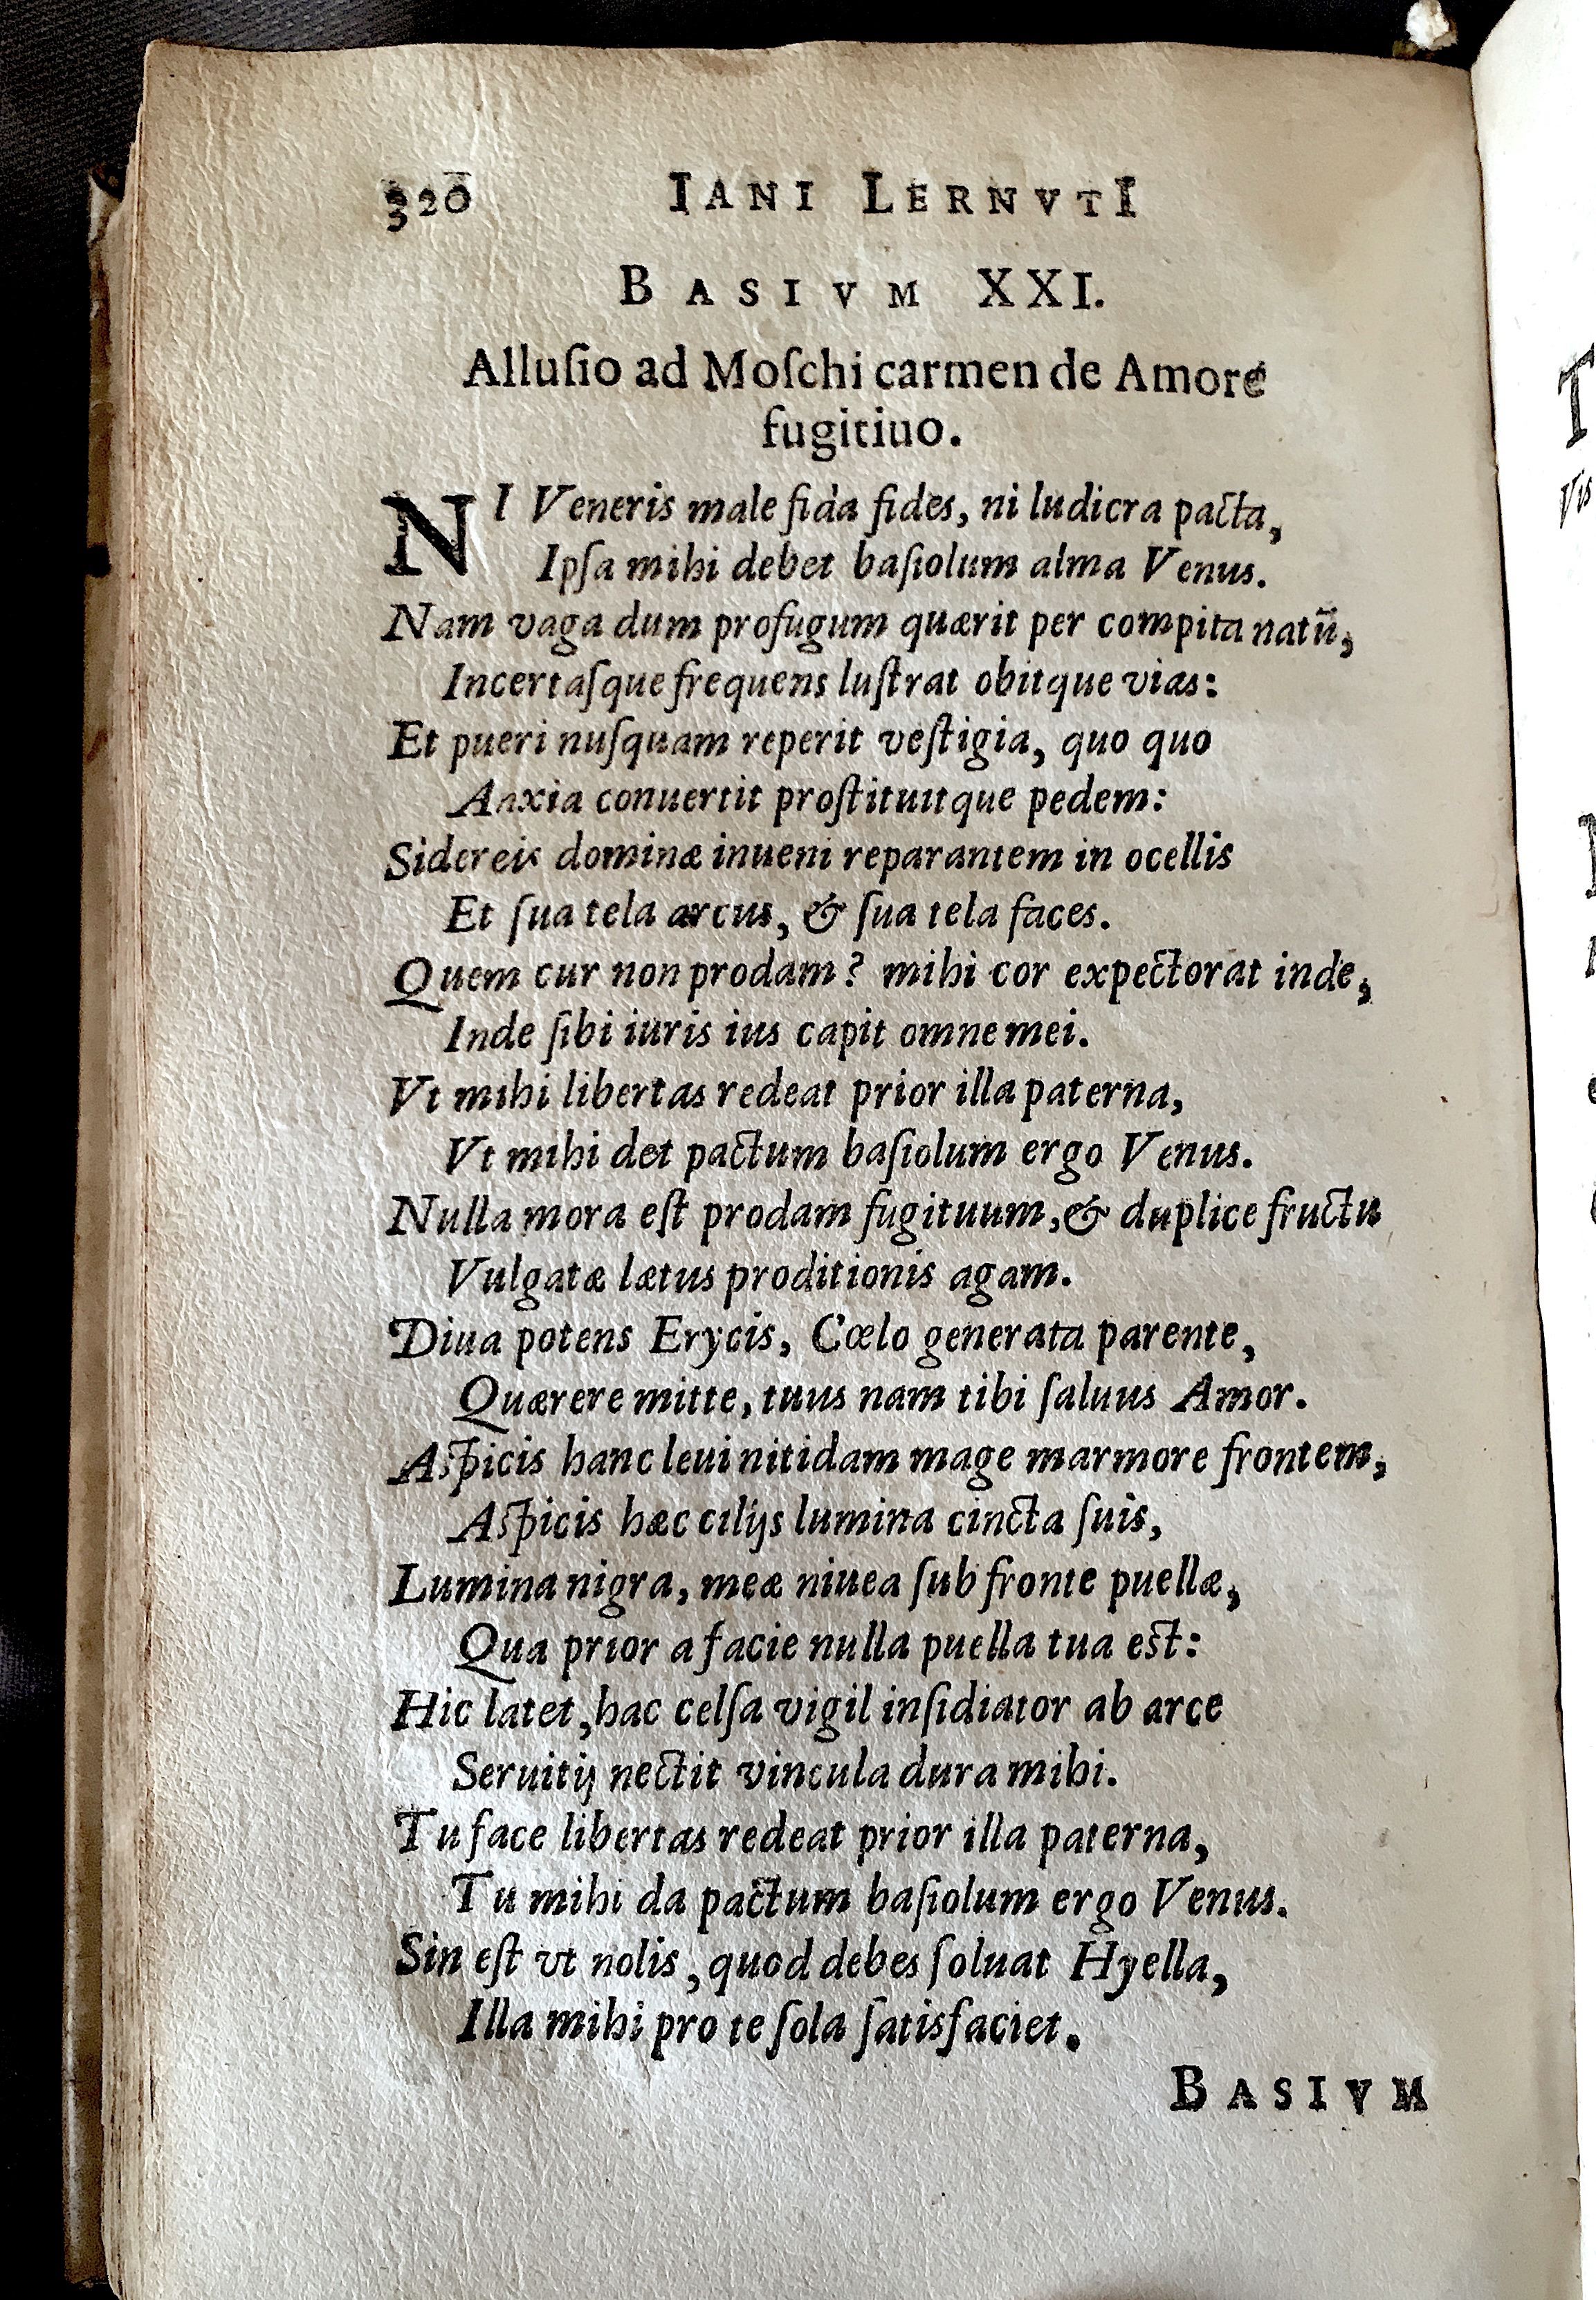 320 IANI LERNVTI
BASIVM XXI.
Alluſio ad Moſchi carmen de Amore
fugitiuo.
NI Veneris male fida fides, ni ludicra pacta,
Ipſa mihi debet baſiolum alma Venus.
Nam vaga dum profugum quærit per compita natū,
Incertaſque frequens luſtrat obitque vias:
Et pueri nuſquam reperit veſtigia, quo quo
Anxia conuertit proſtituitque pedem:
Sidereis dominæ inueni reparantem in ocellis
Et ſua tela arcus, & ſua tela faces.
Quem cur non prodam? mihi cor expectorat inde,
Inde ſibi iuris ius capit omne mei.
Vt mihi libertas redeat prior illa paterna,
Vt mihi det pactum baſiolum ergo Venus.
Nulla mora eſt prodam fugituum, & duplice fructu
Vulgatæ lætus proditionis agam.
Diua potens Erycis, Cœlo generata parente,
Quærere mitte, tuus nam tibi ſaluus Amor.
Aſpicis hanc leui nitidam mage marmore frontem,
Aſpicis hæc cilijs lumina cincta ſuis,
Lumina nigra, meæ niuea ſub fronte puellæ,
Qua prior a facie nulla puella tua eſt:
Hic latet, hac celſa vigil inſidiator ab arce
Seruitij nectit vincula dura mihi.
Tu face libertas redeat prior illa paterna,
Tu mihi da pactum baſiolum ergo Venus.
Sin eſt vt nolis, quod debes ſoluat Hyella,
Illa mihi pro te ſola ſatisfaciet.
BASIVM